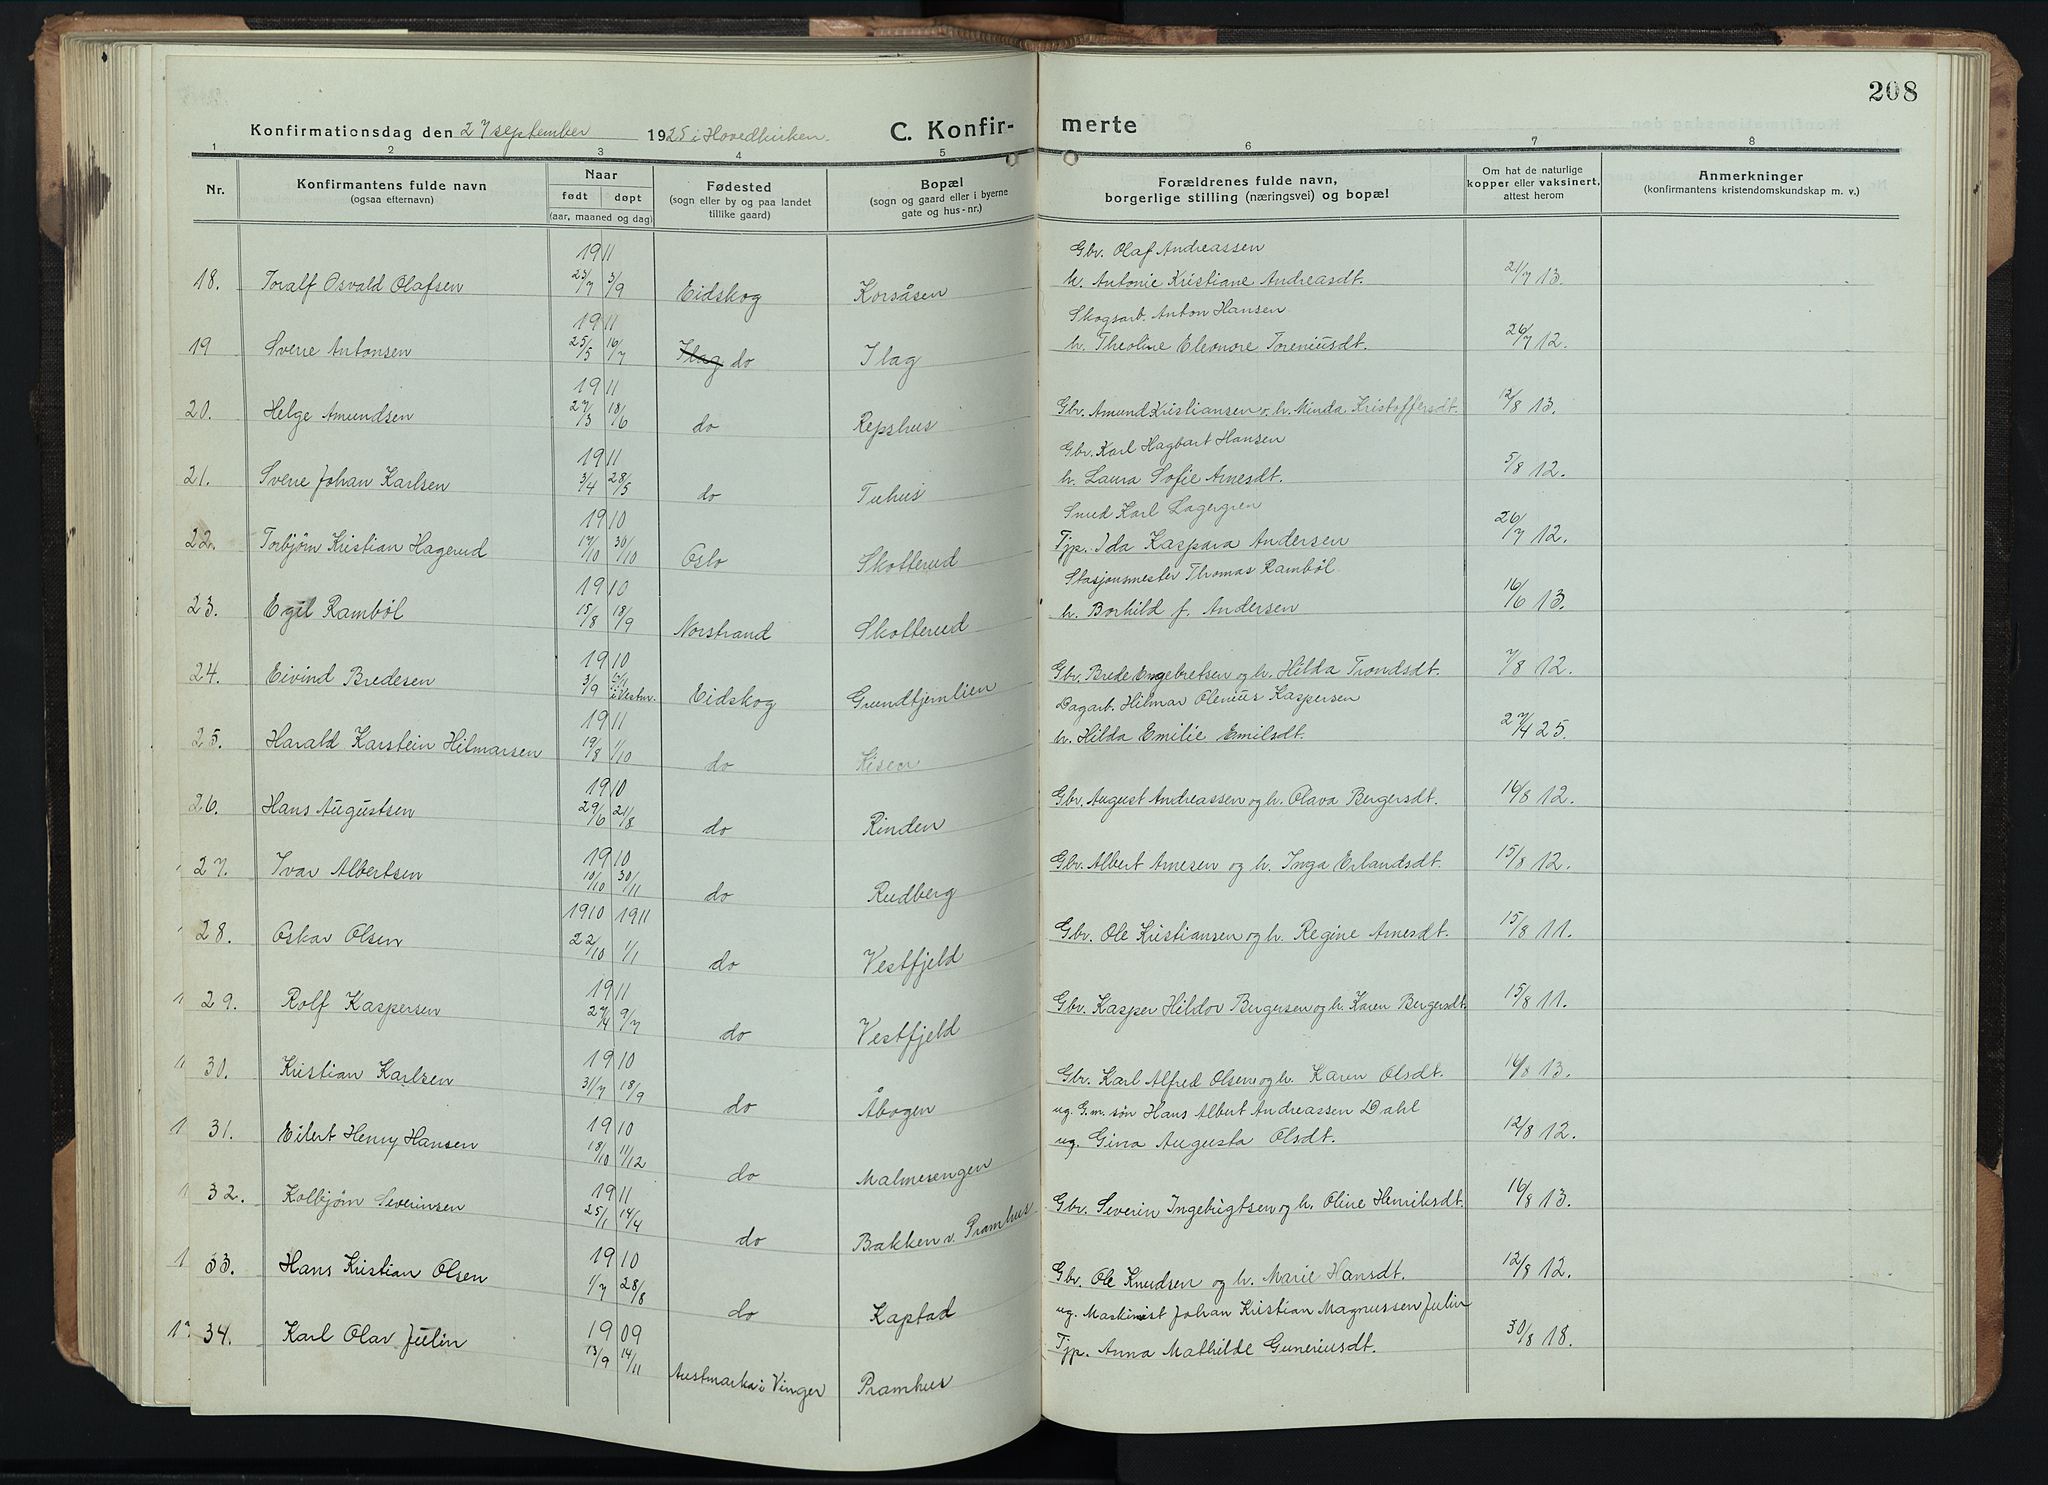 208
Konfirmationsdag den 27 september 1925 i Hovedkirken. C. Konfir- merte
1 2 3 4 5 6 7 8
Nr. Konfirmantens fulde navn (ogsaa efternavn) Naar født døpt (aar, maaned og dag) Fødested (sogn eller by og paa landet tillike gaard) Bopæl (sogn og gaard eller i byerne gate og hus-nr.) Forældrenes fulde navn, borgerlige stilling (næringsvei) og bopæl Om hat de naturlige kopper eller vaksinert, attest herom Anmerkninger (konfirmantens kristendomskundskap m. v.)
1911 Gbr. Olaf Andreassen
18. Toralf Osvald Olafsen 23/7 3/9 Eidskog Korsåsen h. Antonie Kristiane Andreasdt. 21/7 13.
1911 Skogsarb. Anton Hansen
19 Sverre Antonsen 25/5 16/7 Ilag do Ilag h. Theoline Eleonore Toreniusdt. 26/7 12.
1911
20. Helge Amundsen 27/3 18/6 do Repshus Gbr. Amund Kristiansen o. h. Minda Kristoffersdt. 12/8 13.
1911 Gbr. Karl Hagbart Hansen
21. Sverre Johan Karlsen 3/4 28/5 do Tuhus h. Laura Sofie Arnesdt. 5/8 12.
1910 Smed Karl Lagergren
22. Torbjørn Kristian Hagerud 17/10 30/10 Oslo Skotterud Tjp. Ida Kaspara Andersen 26/7 12.
1910 Stasjonsmester Thomas Rambøl.
23. Egil Rambøl 15/8 18/9 Norstrand Skotterud h. Borhild f. Andersen 16/6 13.
1910
24. Eivind Bredesen 3/9 i Vestm. Eidskog Grundtjernlien Gbr. Brede Engebretsen og h. Hilda Trondsdt. 7/8 12.
1911 Dagarb. Hilmar Olenius Kaspersen
25. Harald Karstein Hilmarsen 19/8 1/10 do Kisen h. Hilda Emilie Emilsdt. 27/4 25.
1910
26. Hans Augustsen 29/6 21/8 do Rinden Gbr. August Andreassen og h. Olava Bergersdt. 16/8 12.
1910
27. Ivar Albertsen 10/10 30/11 do Rudberg Gbr. Albert Arnesen og h. Inga Erlandsdt. 15/8 12.
1910 1911
28. Oskar Olsen 22/10 1/1 do Vestfjeld Gbr. Ole Kristiansen og h. Regine Arnesdt. 15/8 11.
1911
29. Rolf Kaspersen 27/4 9/7 do Vestfjeld Gbr. Kasper Hildor Bergersen og h. Karen Bergersdt. 15/8 11.
1910
30. Kristian Karlsen 31/7 18/9 do Åbogen Gbr. Karl Alfred Olsen og h. Karen Olsdt. 16/8 13.
1910 ug. G.m. søn Hans Albert Andreassen Dahl
31. Eilert Henry Hansen 18/10 11/12 do Malmesengen ug. Gina Augusta Olsdt. 12/8 12.
1911
32. Kolbjørn Severinsen 25/1 14/4 do Bakken v. Pramhus Gbr. Severin Ingebrigtsen og h. Oline Henriksdt. 16/8 13.
1910
33. Hans Kristian Olsen 1/7 28/8 do Kaptad Gbr. Ole Knudsen og h. Marie Hansdt. 12/8 12.
1909 ug. Maskinist Johan Kristian Magnussen Julin
34. Karl Olav Julin 13/9 14/11 Austmarka i Vinger Pramhus Tjp. Anna Mathilde Guneriusdt. 30/8 18.